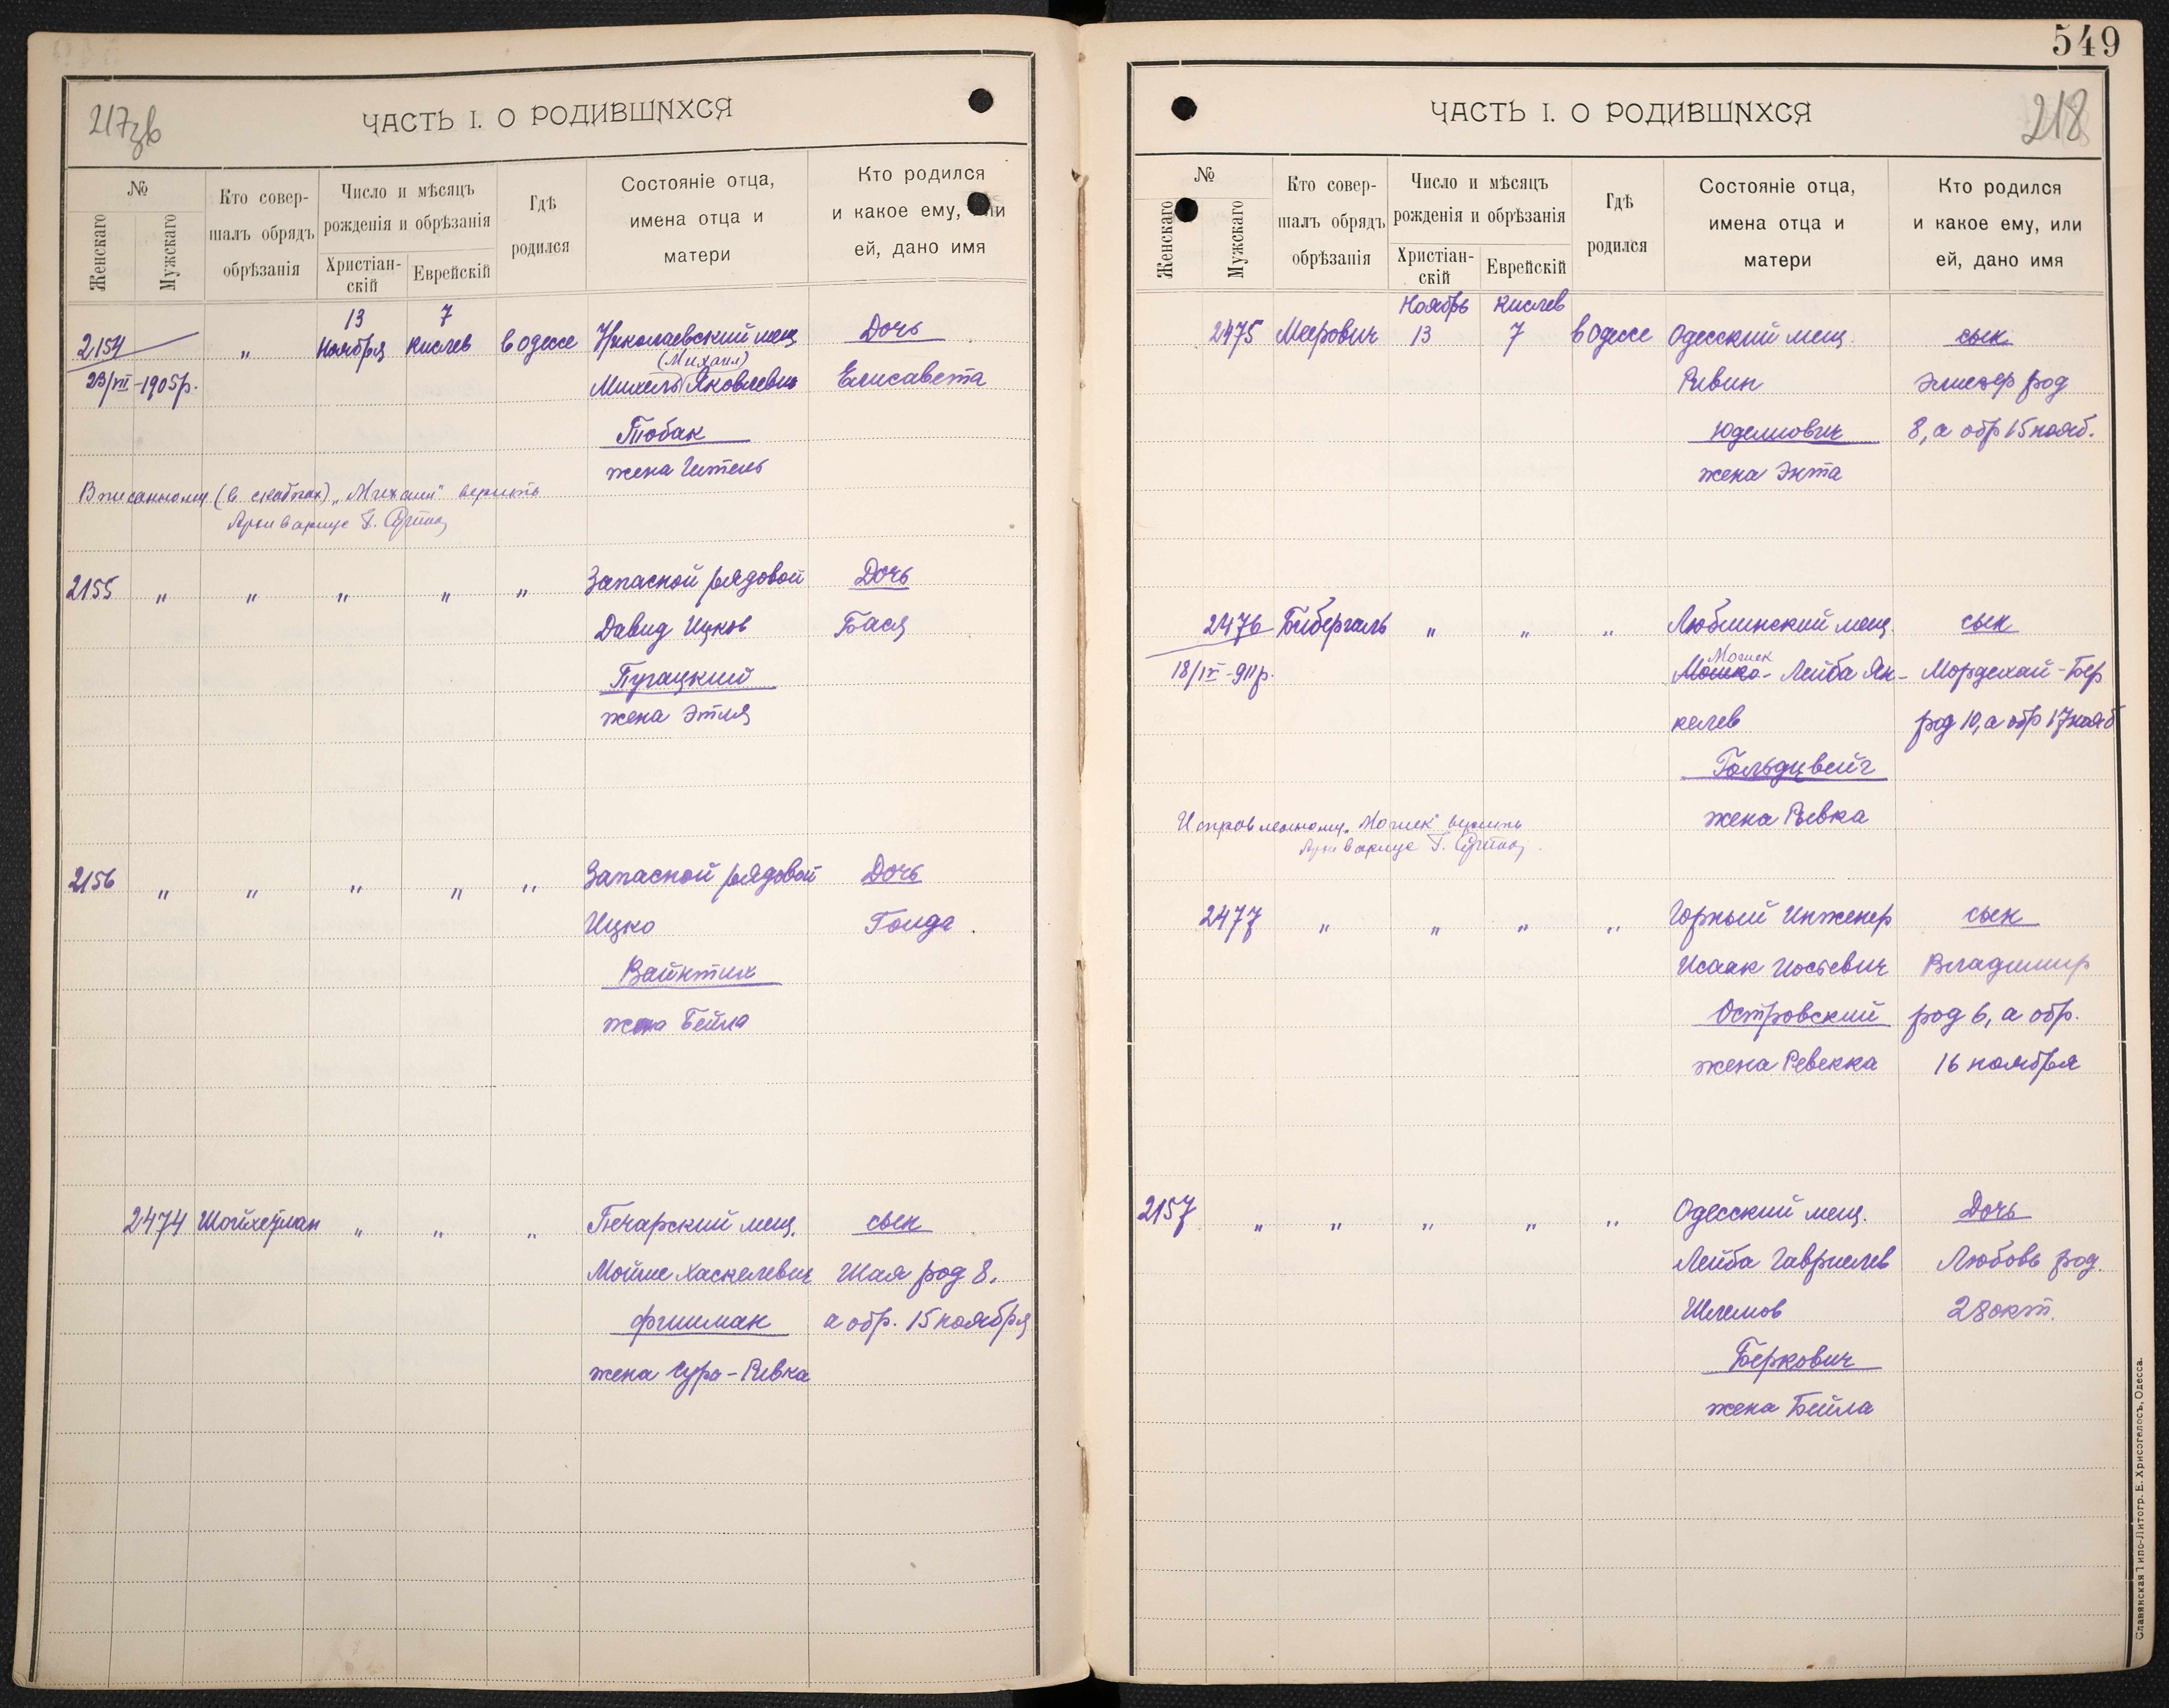 217зв
ЧАСТЬ I. О РОДИВШИХСЯ
№
Женскаго
Мужскаго
Кто совер-
шалъ обрядъ
обрѣзанія
Число и мѣсяцъ
рожденія и обрѣзанія
Христіан-
скій
Еврейскій
Гдѣ
родился
Состояніе отца,
имена отца и
матери
Кто родился
и какое ему, или
ей, дано имя
13 7
2154 " Ноября Кислев в Одессе Николаевский мещ Дочь
(Михаил)
23/VII-1905р. Михель Яковлевич Елисавета
Тобак
жена Гитель
Вписанному (в скобках) „Михаил" верить
2155 " " " " " Запасной рядовой Дочь
Давид Ицков Бася
Пугацкий
жена Этля
2156 " " " " " Запасной рядовой Дочь
Ицко Голда.
Вайнтих
жена Бейла
2474 Шойхетман " " " Печарский мещ. сын
Мойше Хаскелевич Шая род 8.
Фишман а обр. 15 ноября
жена Сура-Ривка
549
ЧАСТЬ I. О РОДИВШИХСЯ
218
№
Женскаго
Мужскаго
Кто совер-
шалъ обрядъ
обрѣзанія
Число и мѣсяцъ
рожденія и обрѣзанія
Христіан-
скій
Еврейскій
Гдѣ
родился
Состояніе отца,
имена отца и
матери
Кто родился
и какое ему, или
ей, дано имя
Ноябрь Кислев
2475 Меерович 13 7 в Одессе Одесский мещ. сын
Ривин Элиезер род
Юделиович 8, а обр 15 нояб.
жена Энта
2476 Бибергаль " " " Люблинский мещ. сын
Мошек
18/IV-911р. Мошко-Лейба Ян- Мордехай-Бер
келев род 10, а обр 17 нояб
Гольдцвейг
жена Ривка
Исправленному „Мошек" верить
2477 " " " " Горный Инженер сын
Исаак Иосевич Владимир
Островский род 6, а обр.
жена Ревекка 16 ноября
2157 " " " " " Одесский мещ. Дочь
Лейба Гавриелев Любовь род.
Шлемов 28 окт.
Беркович
жена Бейла
Славянская Типо-Литогр. Е. Хрисогелосъ, Одесса.